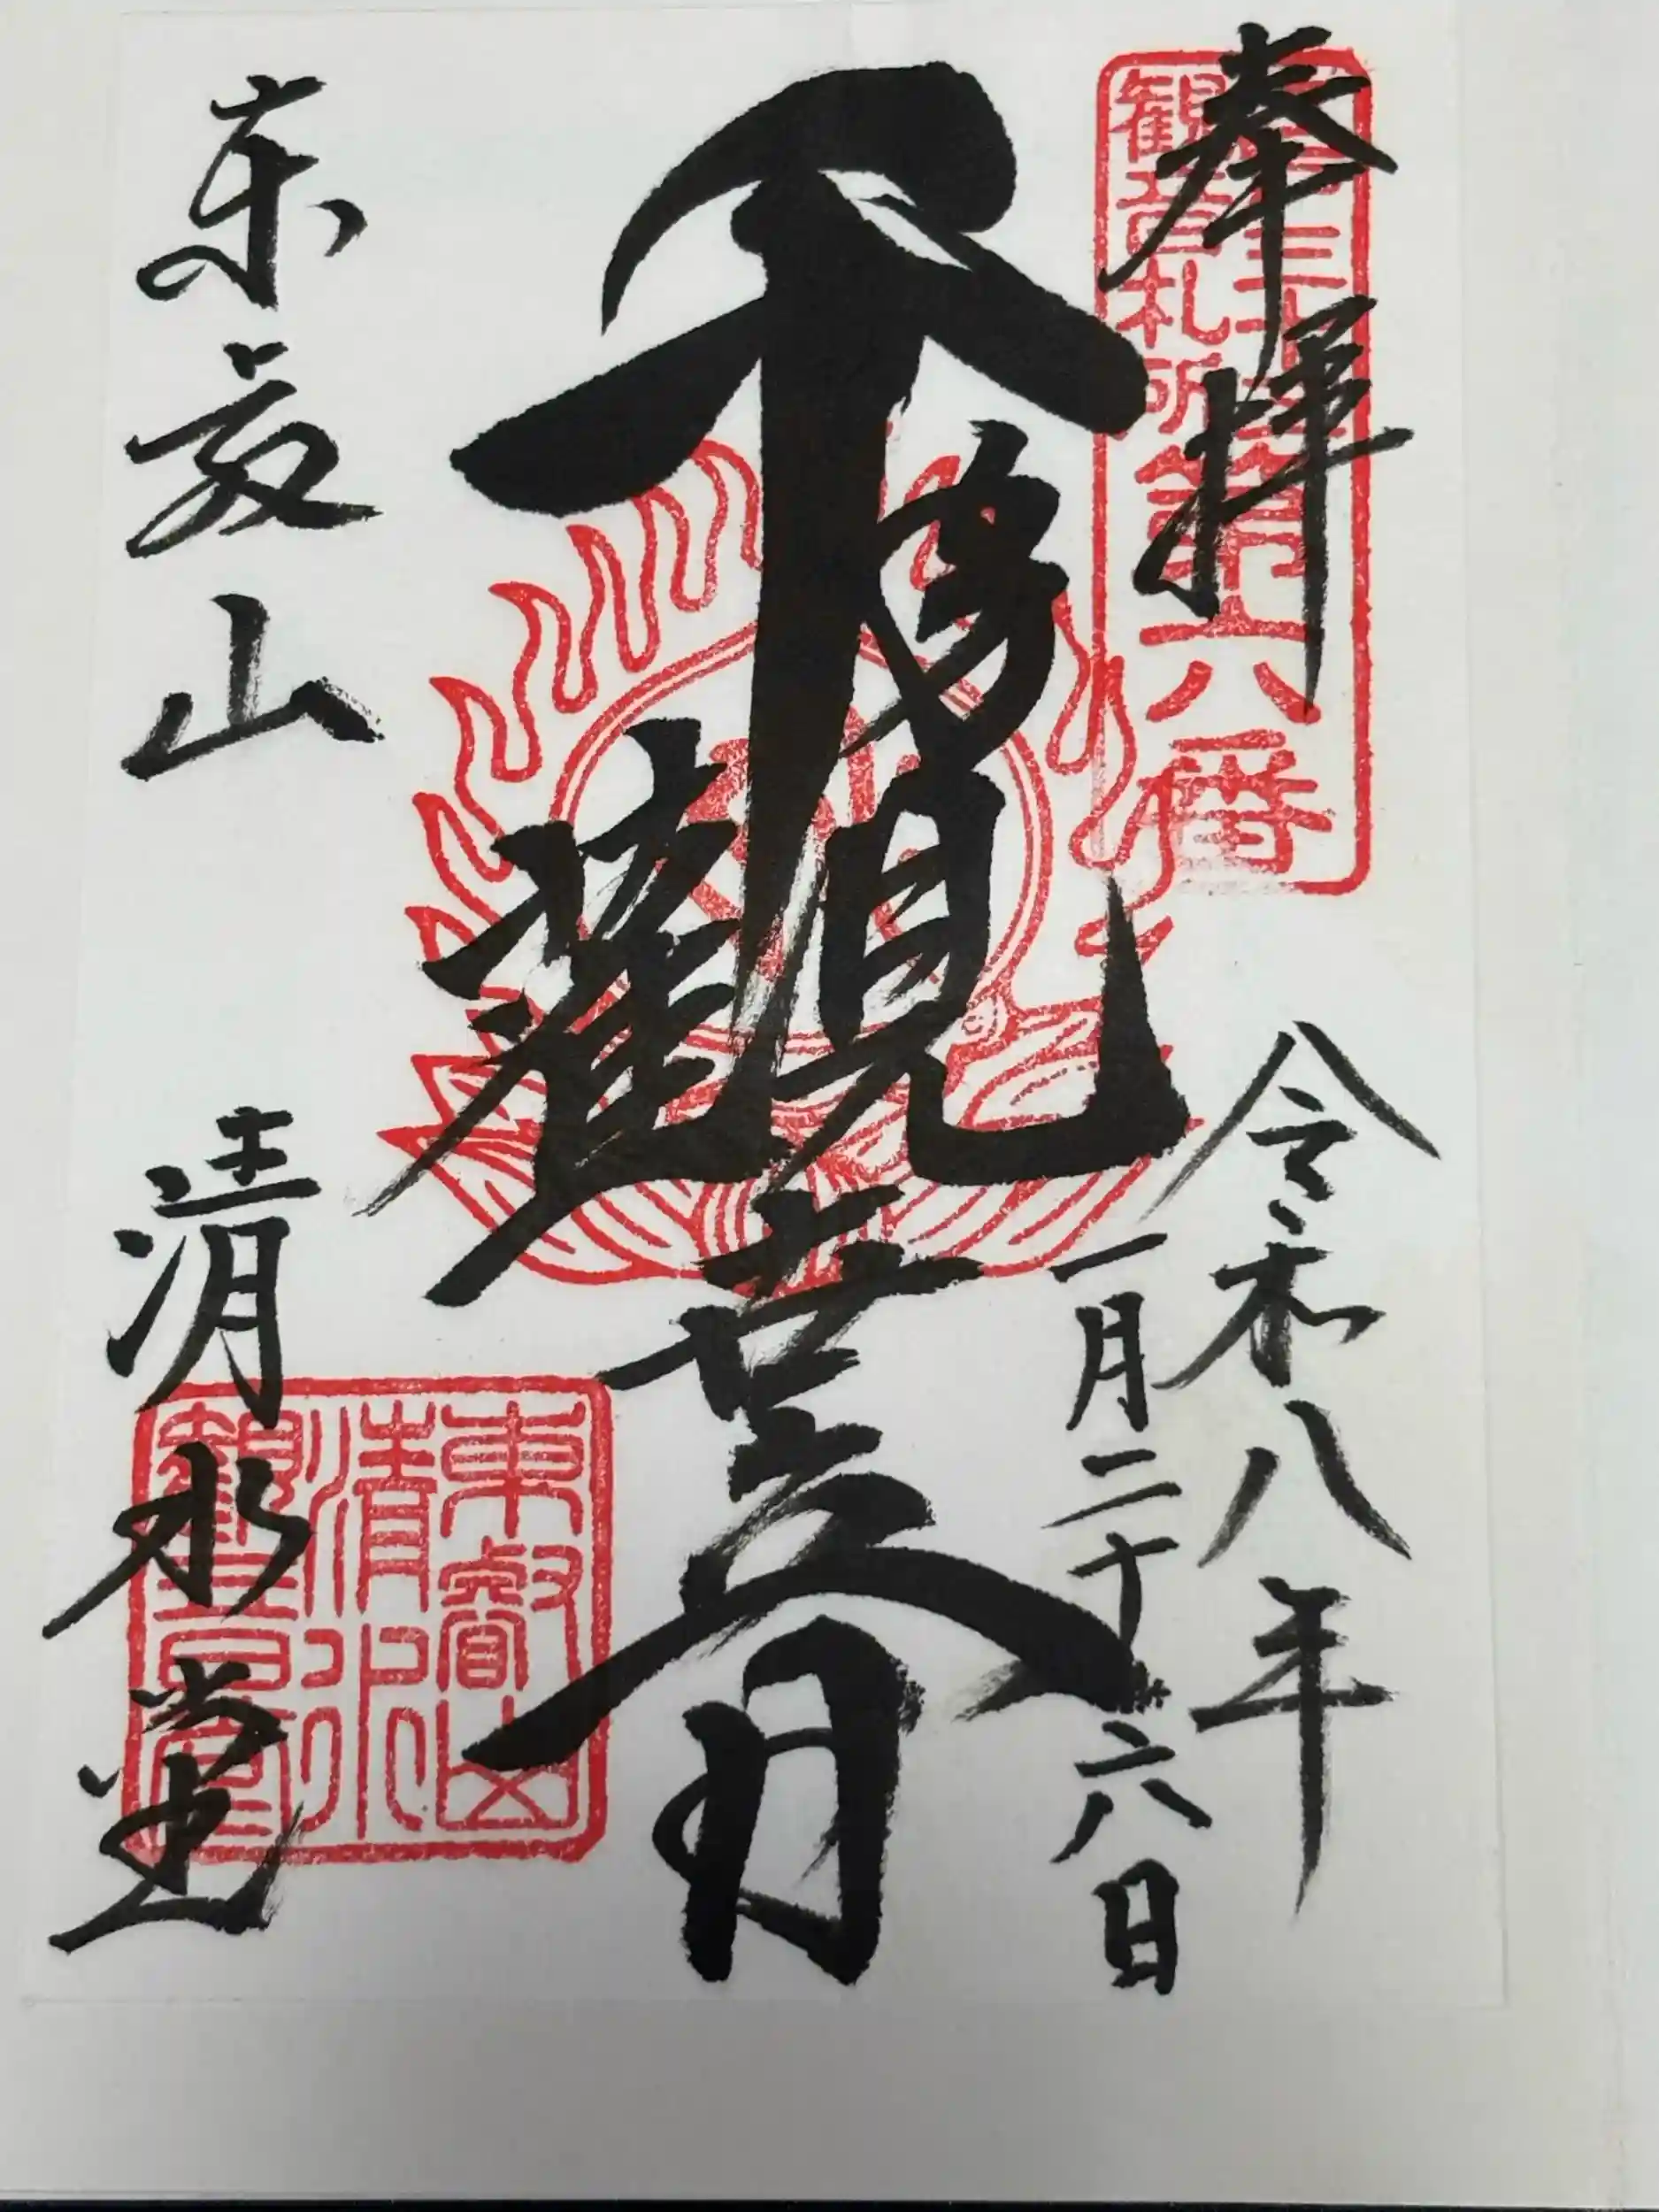 奉拝
観音札所
第六番
令和八年
一月二十六日
千手觀世音
東叡山
清水堂
東叡山
清水